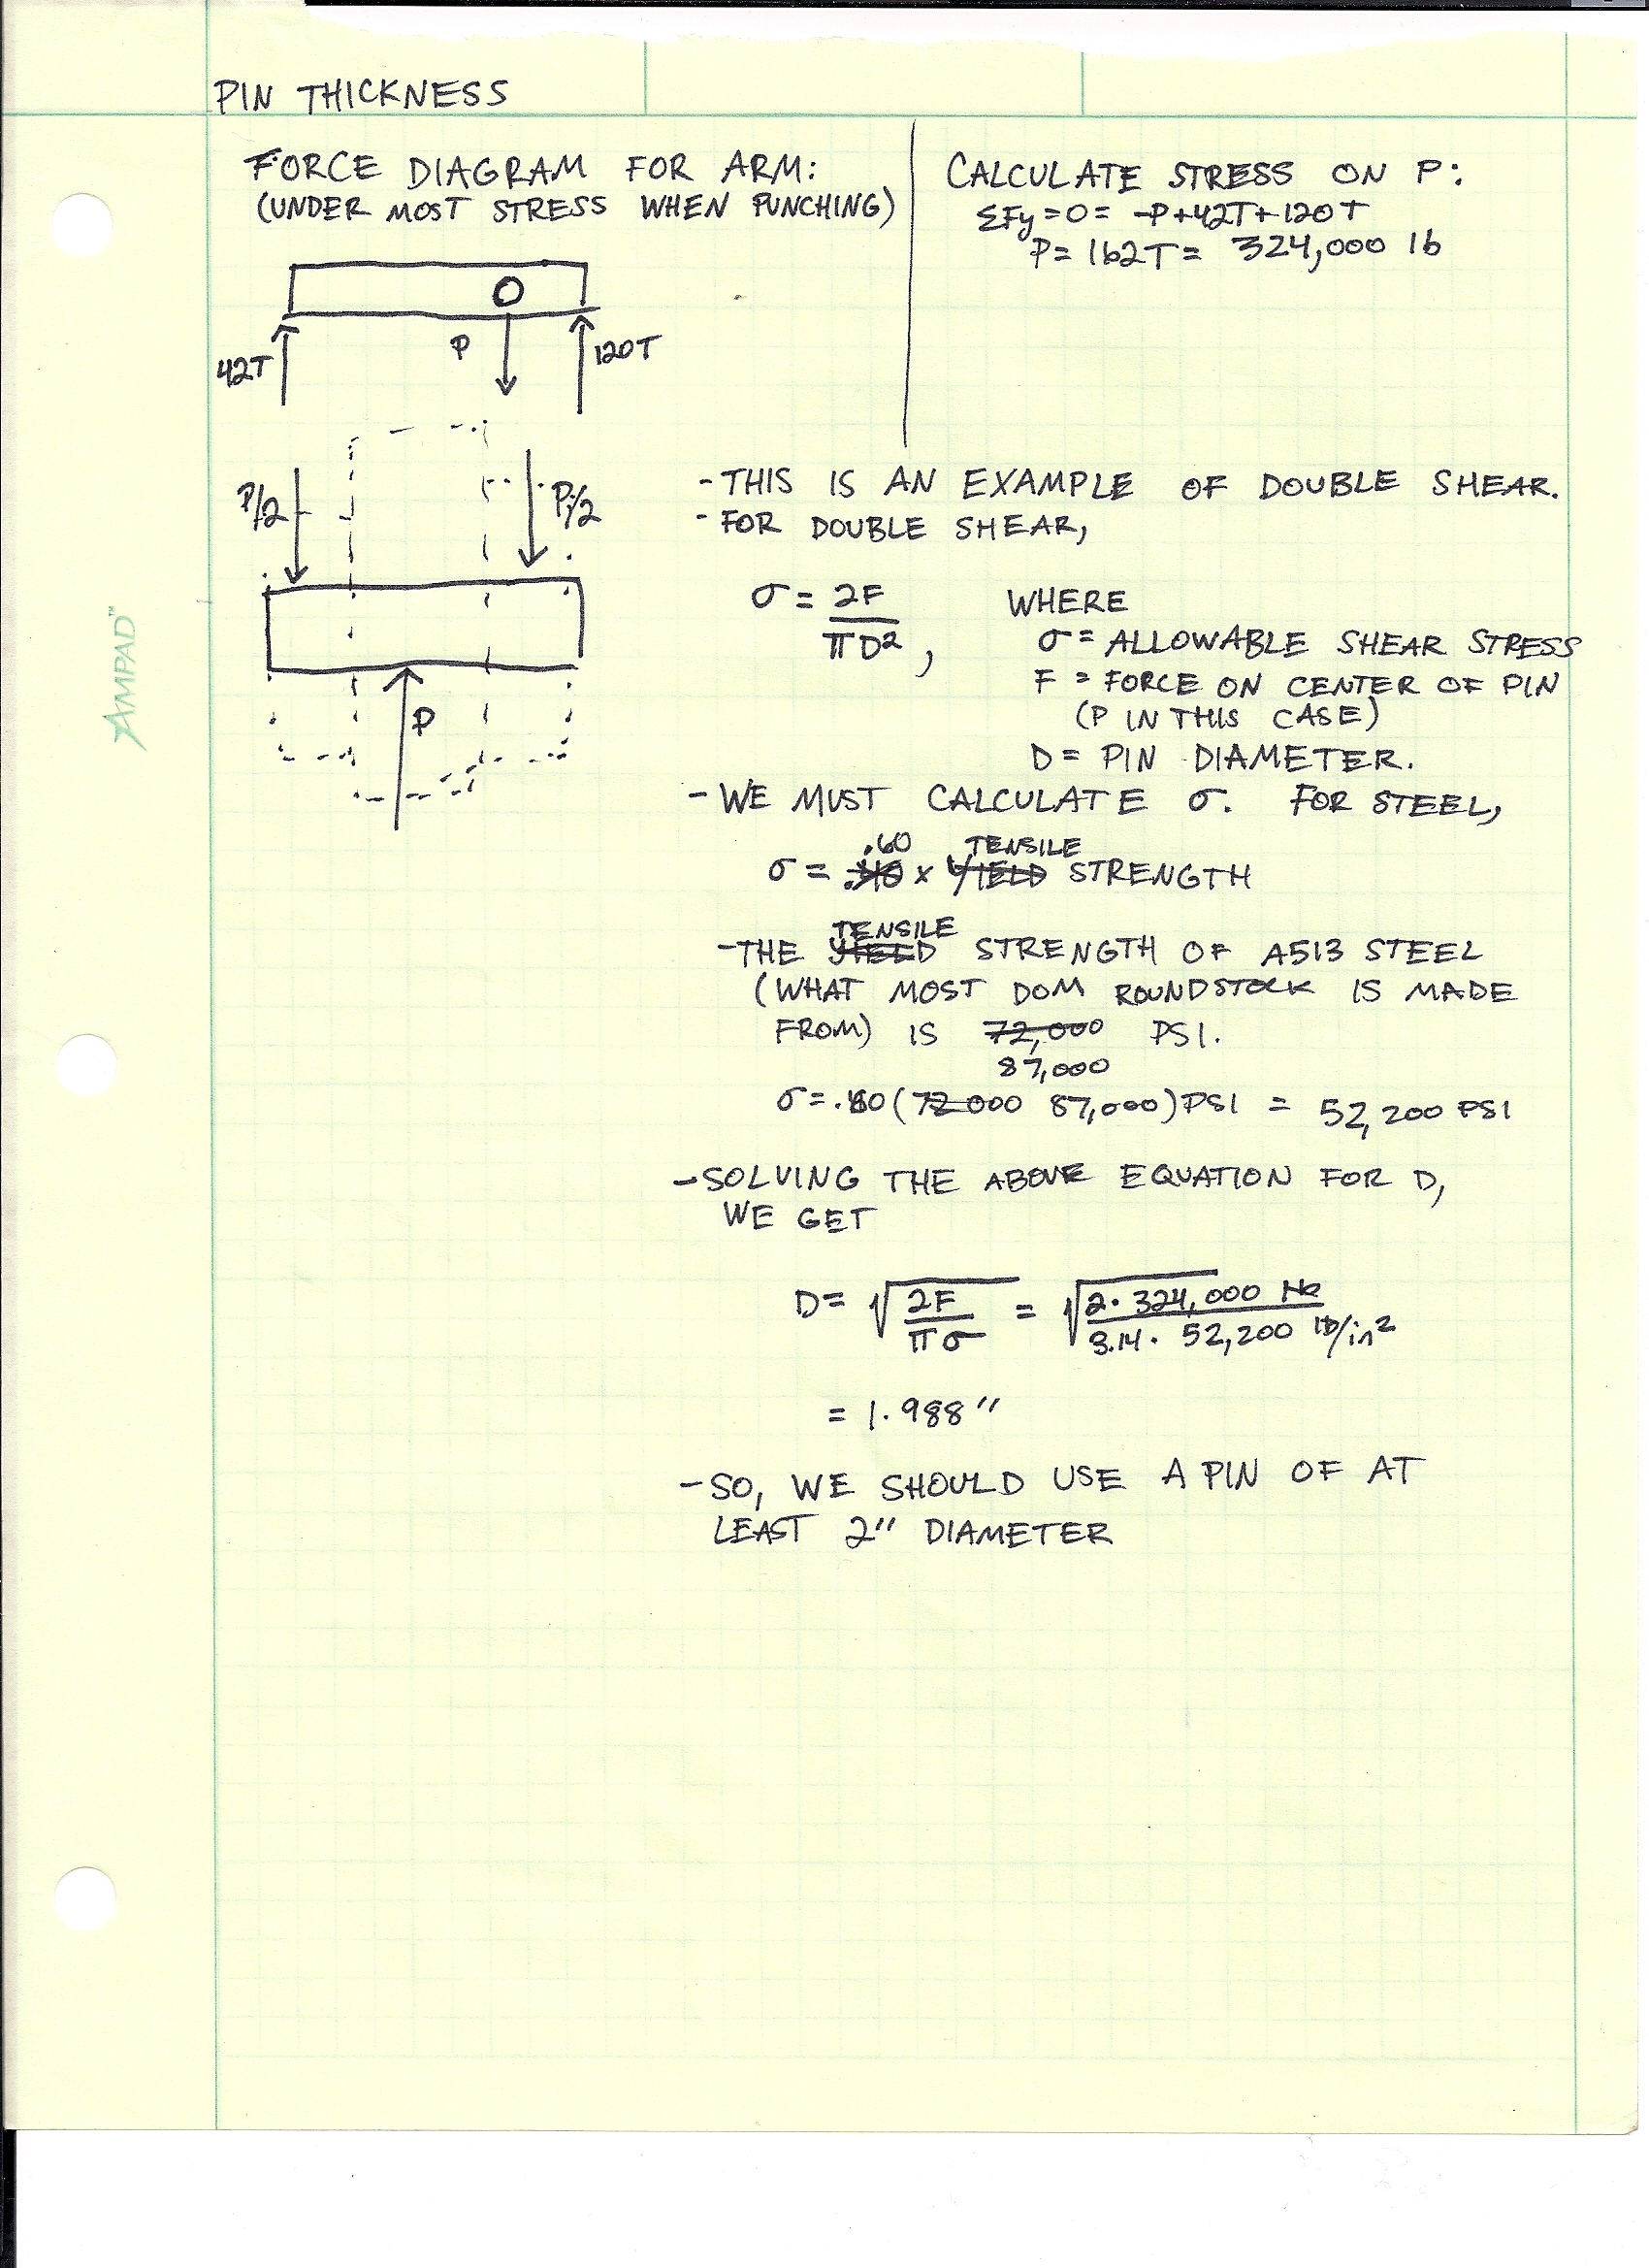 PIN THICKNESS
FORCE DIAGRAM FOR ARM:
(UNDER MOST STRESS WHEN PUNCHING)
42T
P
120T
CALCULATE STRESS ON P:
ΣFy=0= -P+42T+120T
P= 162T= 324,000 lb
P/2
P/2
P
- THIS IS AN EXAMPLE OF DOUBLE SHEAR.
- FOR DOUBLE SHEAR,
σ = 2F
πD²,
WHERE
σ = ALLOWABLE SHEAR STRESS
F = FORCE ON CENTER OF PIN
(P IN THIS CASE)
D = PIN DIAMETER.
- WE MUST CALCULATE σ. FOR STEEL,
.60 TENSILE
σ = .40 x YIELD STRENGTH
TENSILE
- THE YIELD STRENGTH OF A513 STEEL
(WHAT MOST DOM ROUNDSTOCK IS MADE
FROM) IS 72,000 PSI.
87,000
σ = .60 (72000 87,000) PSI = 52,200 PSI
- SOLVING THE ABOVE EQUATION FOR D,
WE GET
D= √ 2F = √ 2 · 324,000
πσ 3.14 · 52,200 lb/in²
= 1.988"
- SO, WE SHOULD USE A PIN OF AT
LEAST 2" DIAMETER
AMPAD™